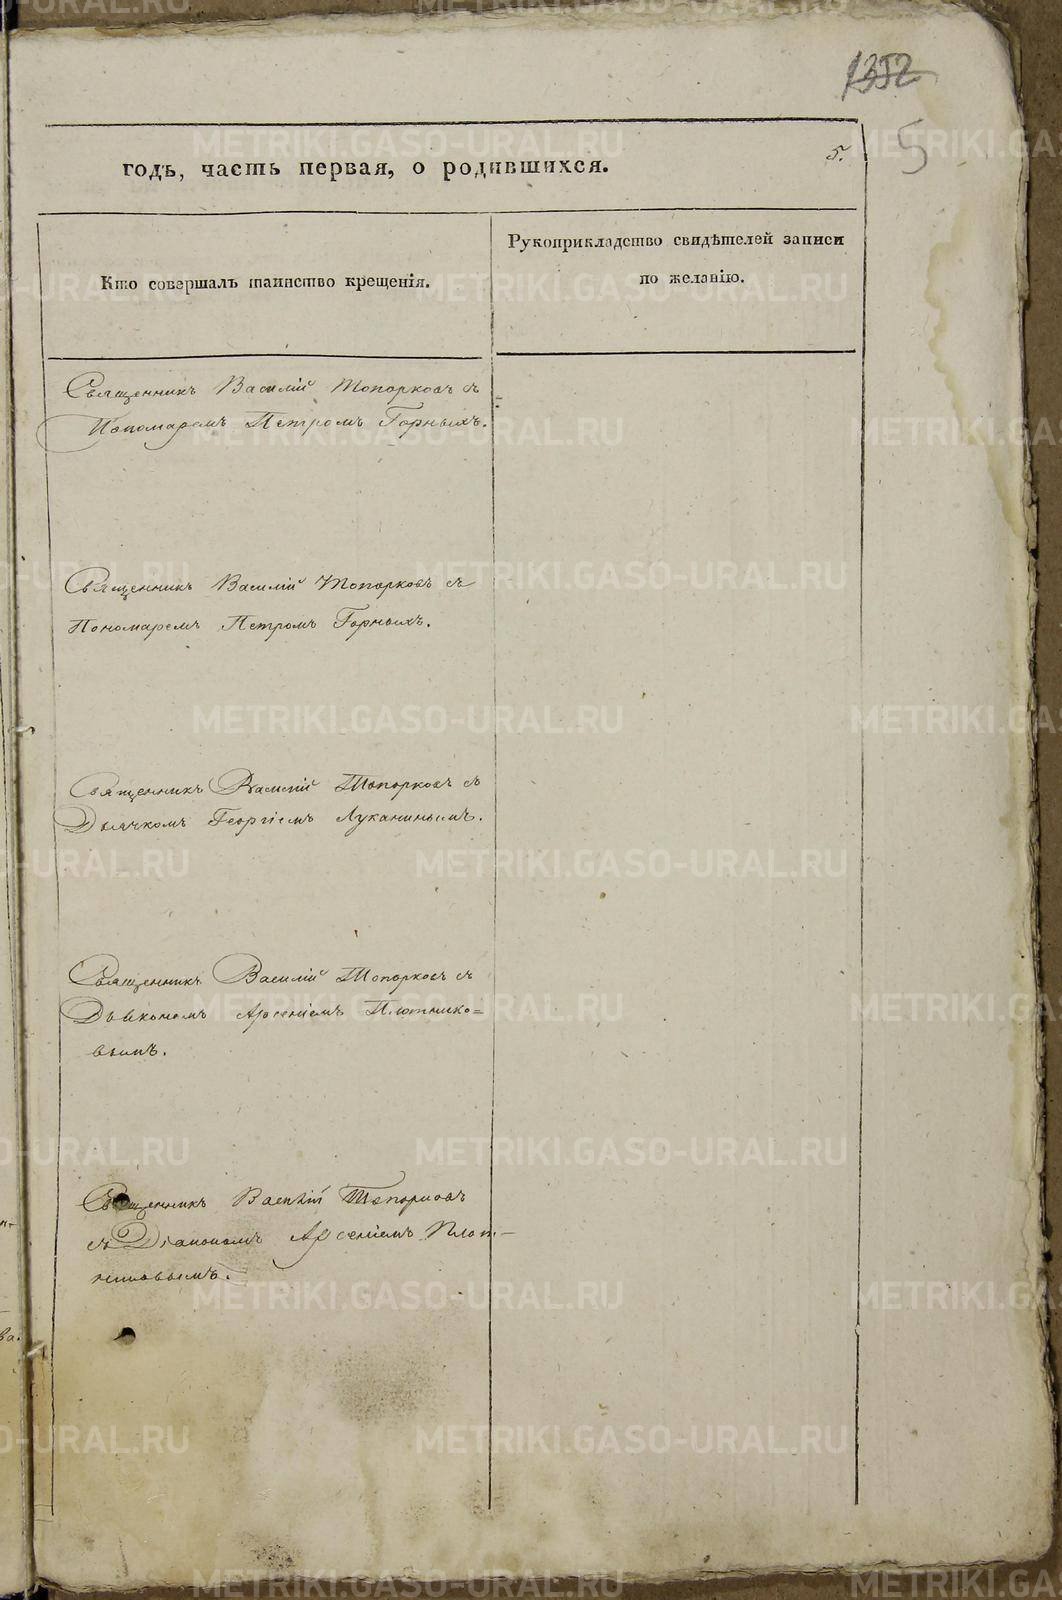 1352
5
годъ, часть первая, о родившихся.
5.
Кто совершалъ таинство крещенія.
Рукоприкладство свидѣтелей записи
по желанію.
Священникъ Василій Топорковъ съ
Пономаремъ Петромъ Горныхъ.
Священникъ Василій Топорковъ съ
Пономаремъ Петромъ Горныхъ.
Священникъ Василій Топорковъ съ
Дьячкомъ Георгіемъ Луканинымъ.
Священникъ Василій Топорковъ съ
Дьякономъ Арсеніемъ Плотнико=
вымъ.
Священникъ Василій Топорковъ
съ Діакономъ Арсеніемъ Плот-
никовымъ.
METRIKI.GASO-URAL.RU